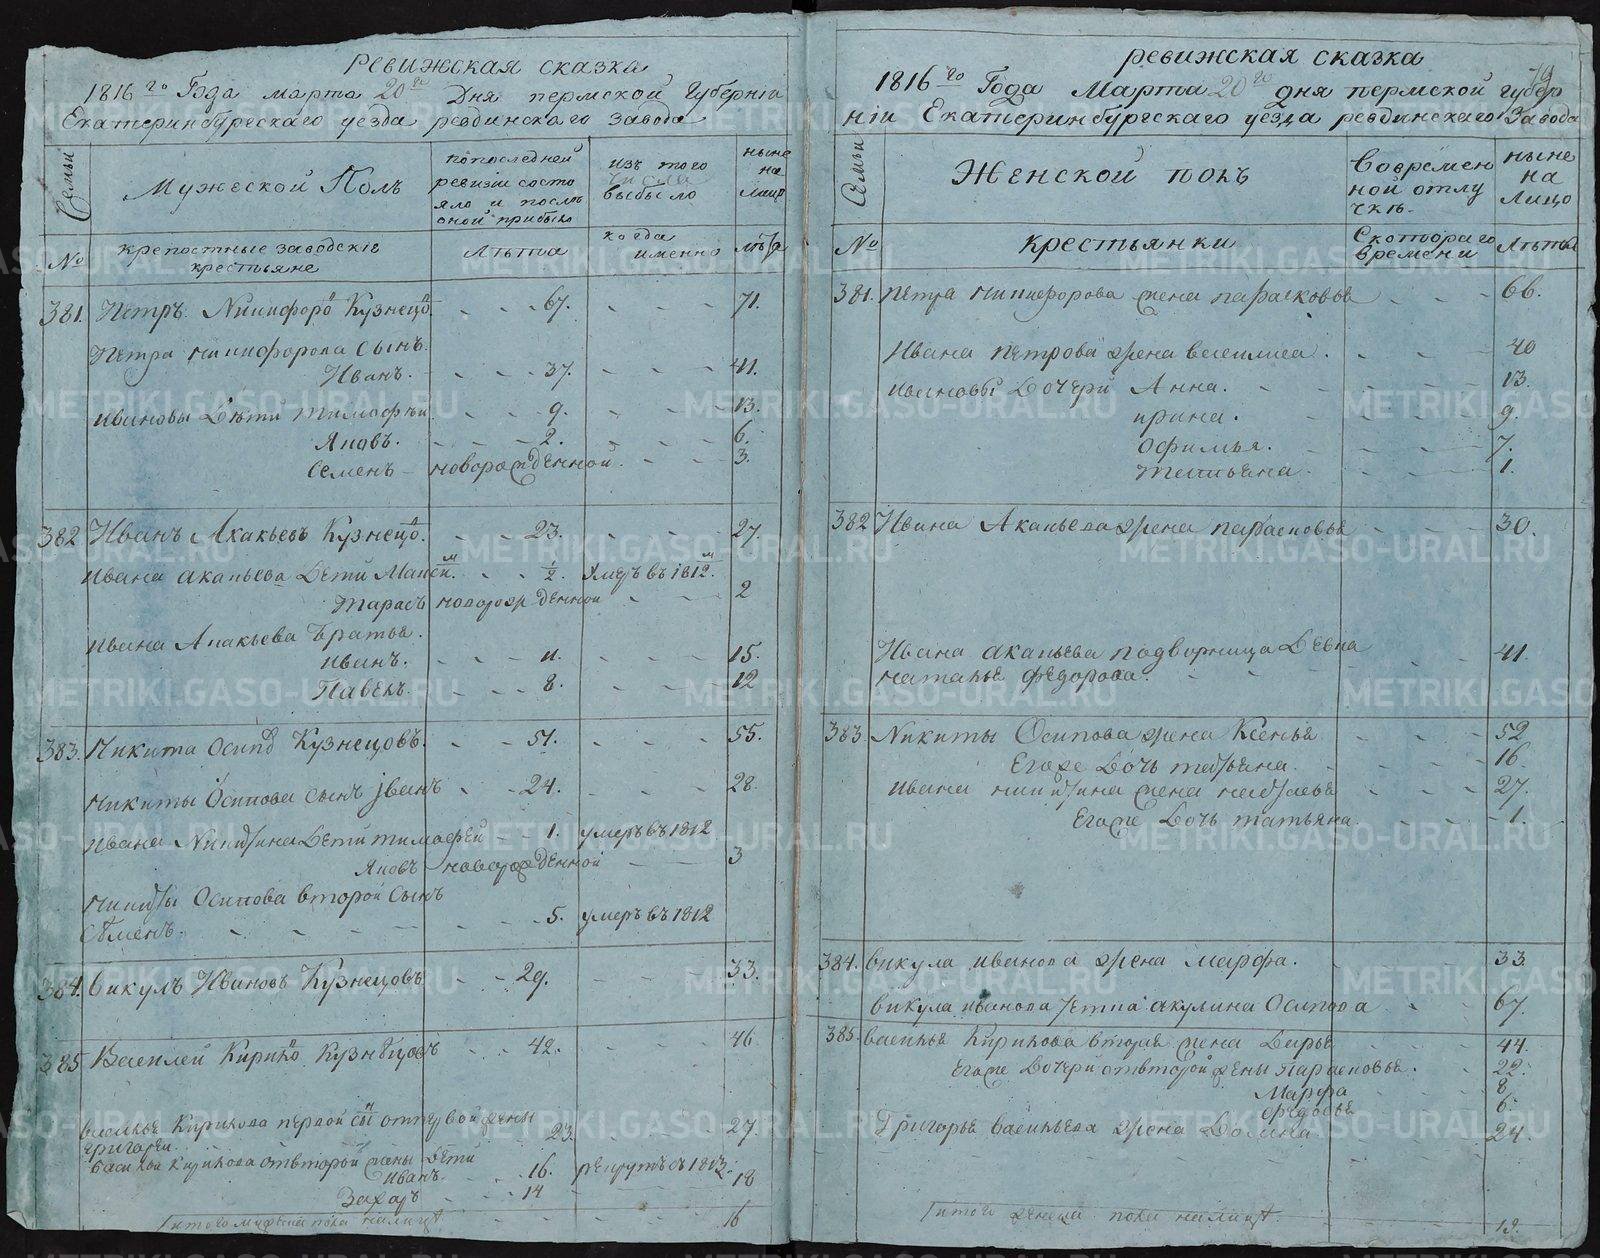 Ревижская сказка
1816го Года марта 20го Дня пермской Губерніи
Екатеринбургскаго уезда ревдинскаго завода
Семьи
Мужеской Полъ
попоследней
ревизіи состо
яло и послѣ
оной прибыло
изъ того
числа
выбыло
ныне
на
лицо
№
крепостные заводскіе
крестьяне
Лѣта
когда
именно
лѣта
381. Петръ Никифоро Кузнецо. 67. 71.
Петра никифорова сынъ
Иванъ. 37. 41.
ивановы дѣти тимофѣй. 9. 13.
Яковъ. 2. 6.
Семенъ новорожденной. 3.
382 Иванъ Акакьевъ Кузнецо. 23. 27.
ивана акакьева дети Макси. ½. умеръ въ 1812.
Тарасъ новорожденной 2
ивана Акакьева братья.
иванъ. 11. 15.
Павелъ. 8. 12
383. Никита осипо Кузнецовъ. 51. 55.
никиты Осипова сынъ іванъ 24. 28.
ивана Никитина дети тимофей 1. умеръ въ 1812
Яковъ новорожденной 3
никиты Осипова второй сынъ
Семенъ. 5. умеръ въ 1812
384. викулъ Ивановъ Кузнецовъ 29. 33.
385 Василей Кирило Кузнецовъ 42. 46.
василья Кирилова первой сы от первой жены
григорей 23. 27.
василья Кирилова отвторой жены дети
Иванъ. 16. рекрутъ въ 1813.
Захаръ 14 18
итого мужеска пола налицо 16
ревижская сказка
79
1816го Года Марта 20го дня пермской губер
ніи Екатеринбургскаго уезда ревдинскаго Завода
Семьи
Женской полъ
Во времен
ной отлу
чкѣ.
ныне
на
Лицо
№
крестьянки
Скотораго
времени
Лѣта
381. петра никифорова жена парасковья 66.
Ивана петрова жена василиса. 40
ивановы дочери Анна. 13.
ирина. 9.
офимья. 7.
татьяна. 1.
382 Ивана Акакьева жена парасковья 30.
Ивана акакьева подворница девка
наталья федорова. 41.
383. Никиты Осипова жена Ксенья 52
Егоже дочь татьяна. 16.
ивана никитина жена наталья 27.
Егоже дочь татьяна. 1.
384. викула иванова жена марфа. 33.
викула иванова тетка акулина Осипова 67.
385. василья Кирилова вторая жена дарья 44.
Егоже дочери отвторой жены парасковья. 22.
Марфа 8
федосья 6.
Григорья васильева жена домна 24.
итого женска пола налицо. 19.